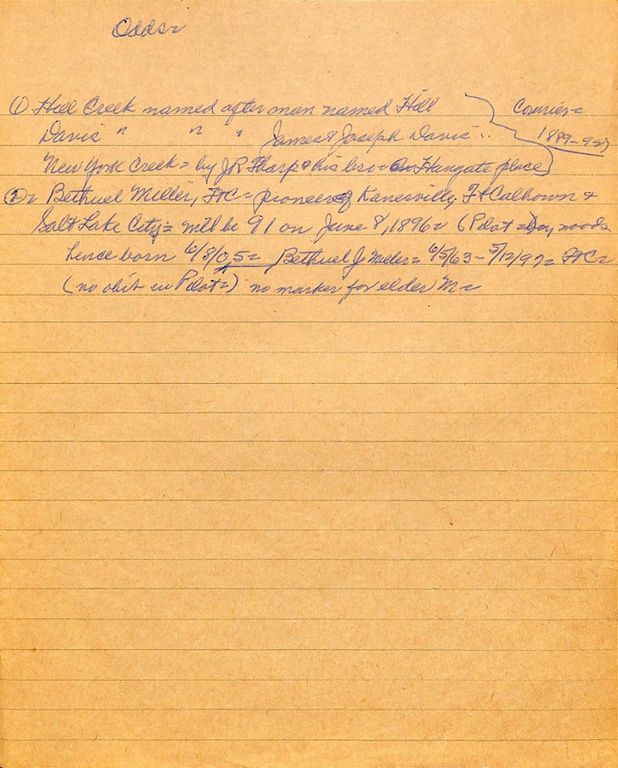 Odds=
① Hill Creek named after man named Hill
Courier=
Davis " " " James & Joseph Davis
1889-9
New York Creek= by JR Tharp & his bro= on Hungate place
②= Bethuel Miller, FtC= pioneer of Kanesville, FtCalhoun &
Salt Lake City= will be 91 on June 8, 1896= (Pilot=
hence born 6/8/05= Bethuel J Miller= 6/5/63-5/12/97= FtC=
(no obit in Pilot=) no marker for elder M=